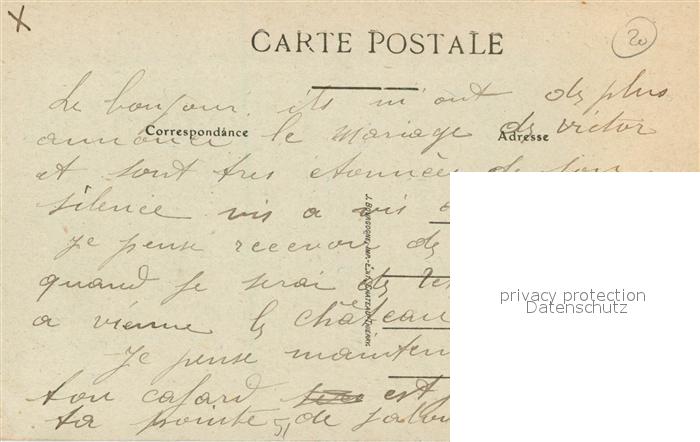 X
20
CARTE POSTALE
Correspondance
Adresse
Le bonjour. ils m'ont de plus
annoncé le mariage de victor
et sont très étonnées de son
silence vis a vis
Je pense recevoir de
quand je serai de
a vienne le château
Je pense mainten
ton cafard est
ta pointe de jalou
51
privacy protection
Datenschutz